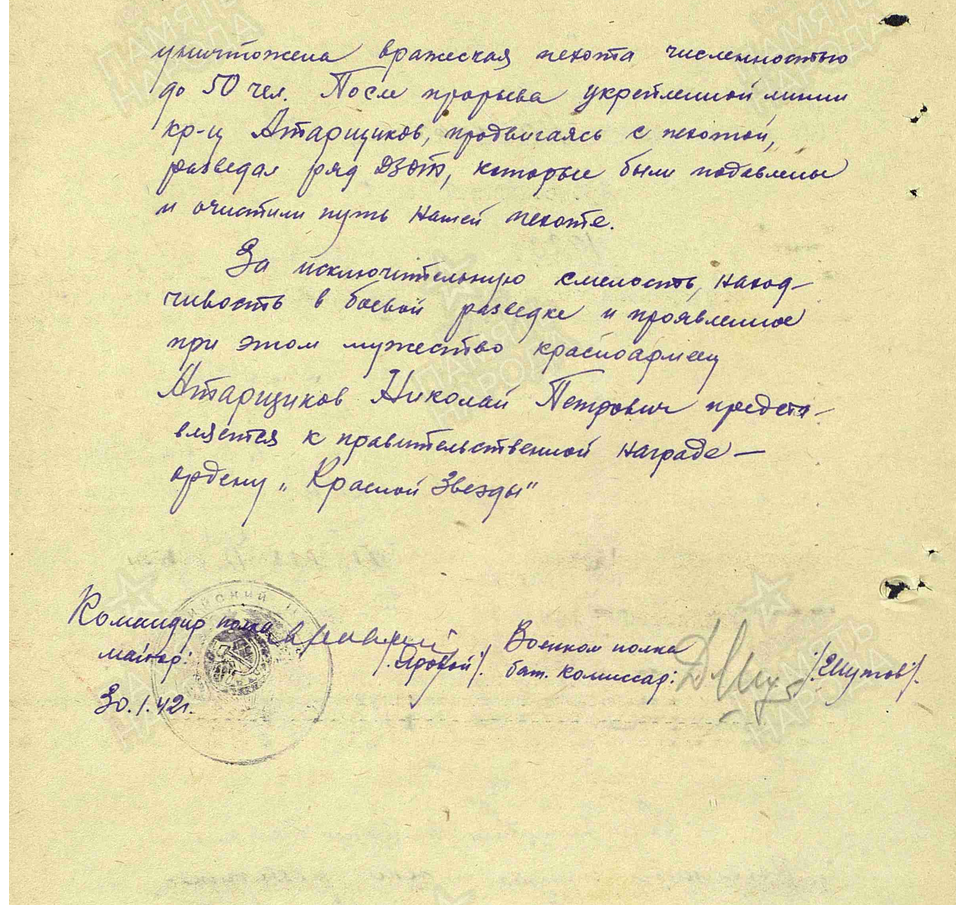 уничтожена вражеская пехота численностью
до 50 чел. После прорыва укрепленной линии
кр-ц Атарщиков, продвигаясь с пехотой,
разведал ряд ДЗОТ, которые были подавлены
и очистили путь нашей пехоте.
За исключительную смелость, наход-
чивость в боевой разведке и проявленное
при этом мужество красноармеец
Атарщиков Николай Петрович предста-
вляется к правительственной награде —
ордену „Красной Звезды"
Командир полка
майор: /Яровой/.
30.1.42г.
Военком полка
бат. комиссар: /Шутов/.
ПАМЯТЬ НАРОДА